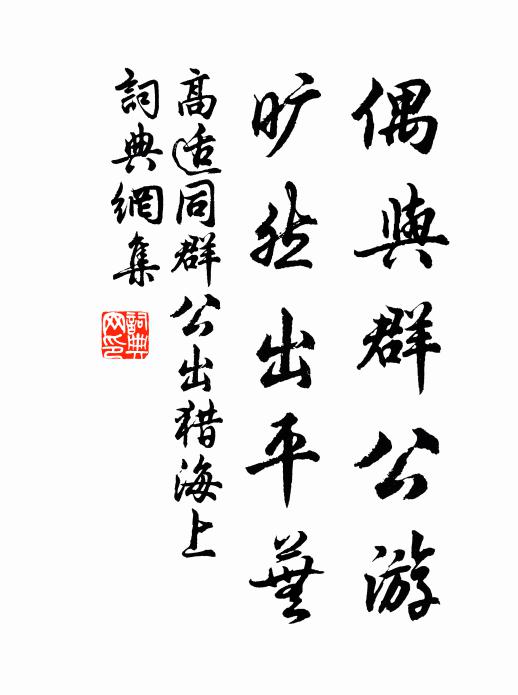 偶與群公游
旷然出平蕪
高适同群公出猎海上
詞典網集
詞典網印